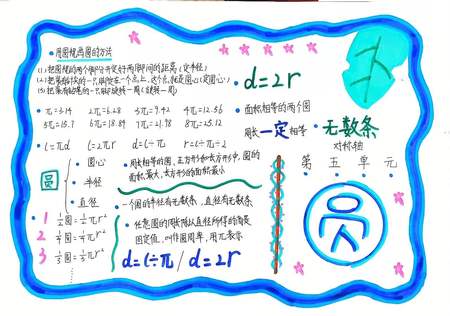 用圆规画圆的方法
(1)把圆规的两个脚分开定好两脚间的距离(定半径)
(2)把有针尖的一只脚固定在一个点上,这个点就是圆心(定圆心)
(3)把有铅笔的一只脚旋转一周(旋转一周)
d=2r
π=3.14 2π=6.28 3π=9.42 4π=12.56
5π=15.7 6π=18.84 7π=21.98 8π=25.12
面积相等的两个圆
周长一定相等
c=πd c=2πr d=c÷π r=c÷π÷2
无数条
对称轴
圆
圆心
半径
直径
周长相等的圆,正方形和长方形中,圆的
面积最大,长方形的面积最小
第五单元
一个圆的半径有无数条,直径有无数条
任意圆的周长除以直径所得的商是
固定值,叫作圆周率,用π表示
1 ½圆=½πr²
2 ¼圆=¼πr²
3
d=c÷π/d=2r